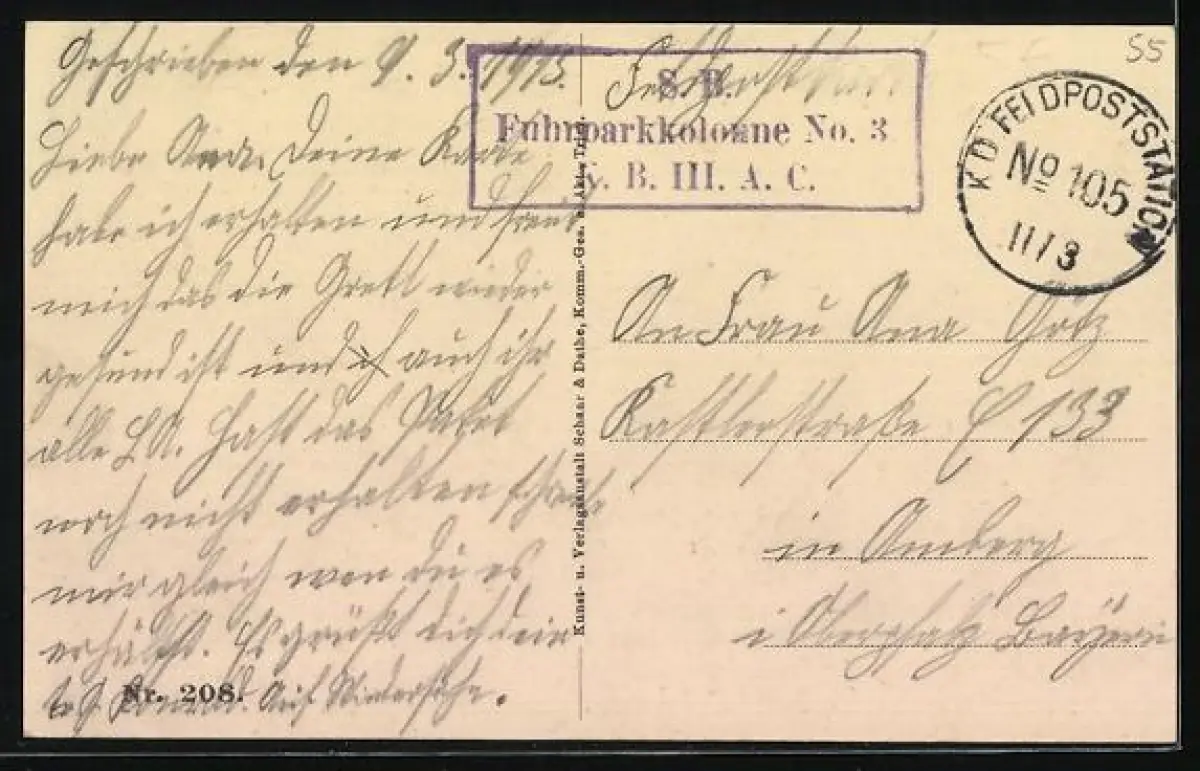 Geschrieben den 9. 3. 1915.
Liebe Ana. Deine Karte
habe ich erhalten und freut
mich das die Grettl wieder
gesund ist und auch ihr
alle L A. Hast das Paket
noch nicht erhalten schreibe
mir gleich wen du es
erhälst. Es grüßt dich dein
Konrad. Auf Wiedersehn.
Nr. 208.
Kunst- u. Verlagsanstalt Schaar & Dathe, Komm.-Ges. a. Akt., Trier.
Feldpostkarte
S. B.
Fuhrparkkolonne No. 3
K. B. III. A. C.
55
K. D. FELDPOSTSTATION
No 105
11/3
An Frau Ana Götz
Kastlerstraße E 133
in Amberg
i Oberpfalz Bayern